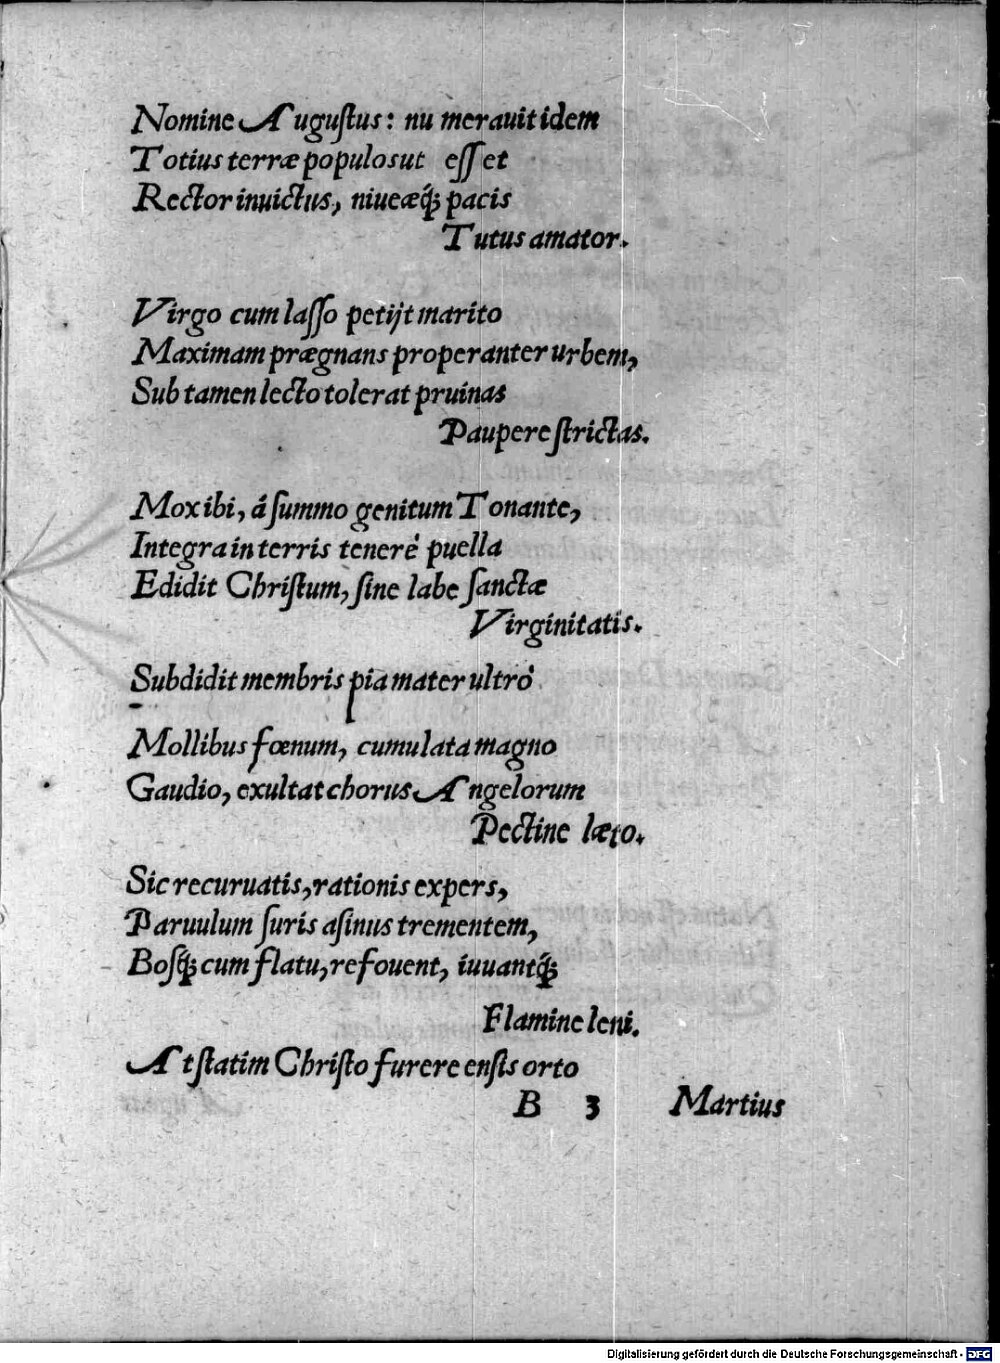 Nomine Auguſtus: nu merauit idem
Totius terræ populos ut eſſet
Rector inuictus, niueæq́; pacis
Tutus amator.
Virgo cum laſſo petijt marito
Maximam prægnans properanter urbem,
Sub tamen lecto tolerat pruinas
Paupere ſtrictas.
Mox ibi, á ſummo genitum Tonante,
Integra in terris tenerè puella
Edidit Chriſtum, ſine labe ſanctæ
Virginitatis.
Subdidit membris pia mater ultrò
Mollibus fœnum, cumulata magno
Gaudio, exultat chorus Angelorum
Pectine læto.
Sic recuruatis, rationis expers,
Paruulum ſuris aſinus trementem,
Boſq́; cum flatu, refouent, iuuantq́;
Flamine leni.
At ſtatim Chriſto furere enſis orto
B 3 Martius
Digitalisierung gefördert durch die Deutsche Forschungsgemeinschaft - DFG